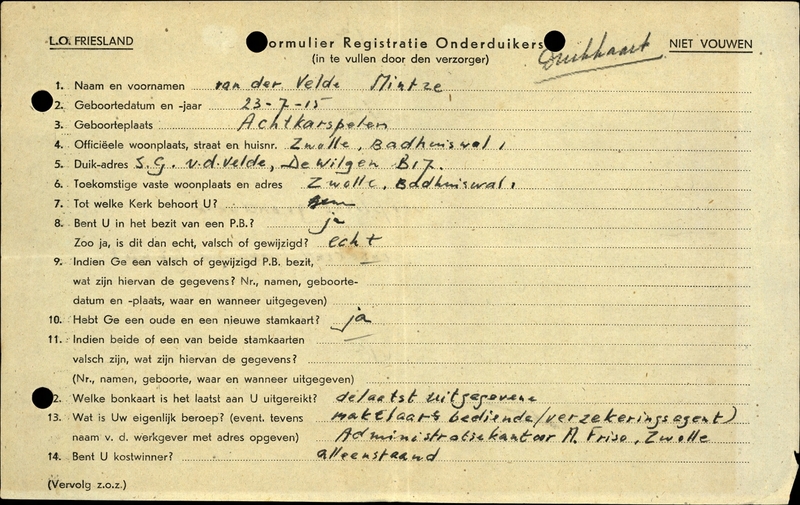 L.O. FRIESLAND
Formulier Registratie Onderduikers
Duikkaart
NIET VOUWEN
(in te vullen door den verzorger)
1. Naam en voornamen van der Velde Mintze
2. Geboortedatum en -jaar 23-7-15
3. Geboorteplaats Achtkarspelen
4. Officiëele woonplaats, straat en huisnr. Zwolle, Badhuiswal 1
5. Duik-adres S.G. v.d. Velde, De Wilgen B17.
6. Toekomstige vaste woonplaats en adres Zwolle, Badhuiswal 1
7. Tot welke Kerk behoort U?
8. Bent U in het bezit van een P.B.? ja
Zoo ja, is dit dan echt, valsch of gewijzigd? echt
9. Indien Ge een valsch of gewijzigd P.B. bezit, —
wat zijn hiervan de gegevens? Nr., namen, geboorte-
datum en -plaats, waar en wanneer uitgegeven)
10. Hebt Ge een oude en een nieuwe stamkaart? ja
11. Indien beide of een van beide stamkaarten —
valsch zijn, wat zijn hiervan de gegevens?
(Nr., namen, geboorte, waar en wanneer uitgegeven)
2. Welke bonkaart is het laatst aan U uitgereikt? de laatst uitgegevene
13. Wat is Uw eigenlijk beroep? (event. tevens makelaars bediende/verzekeringsagent)
naam v. d. werkgever met adres opgeven) Administratiekantoor A. Friso, Zwolle
14. Bent U kostwinner? alleenstaand
(Vervolg z.o.z.)